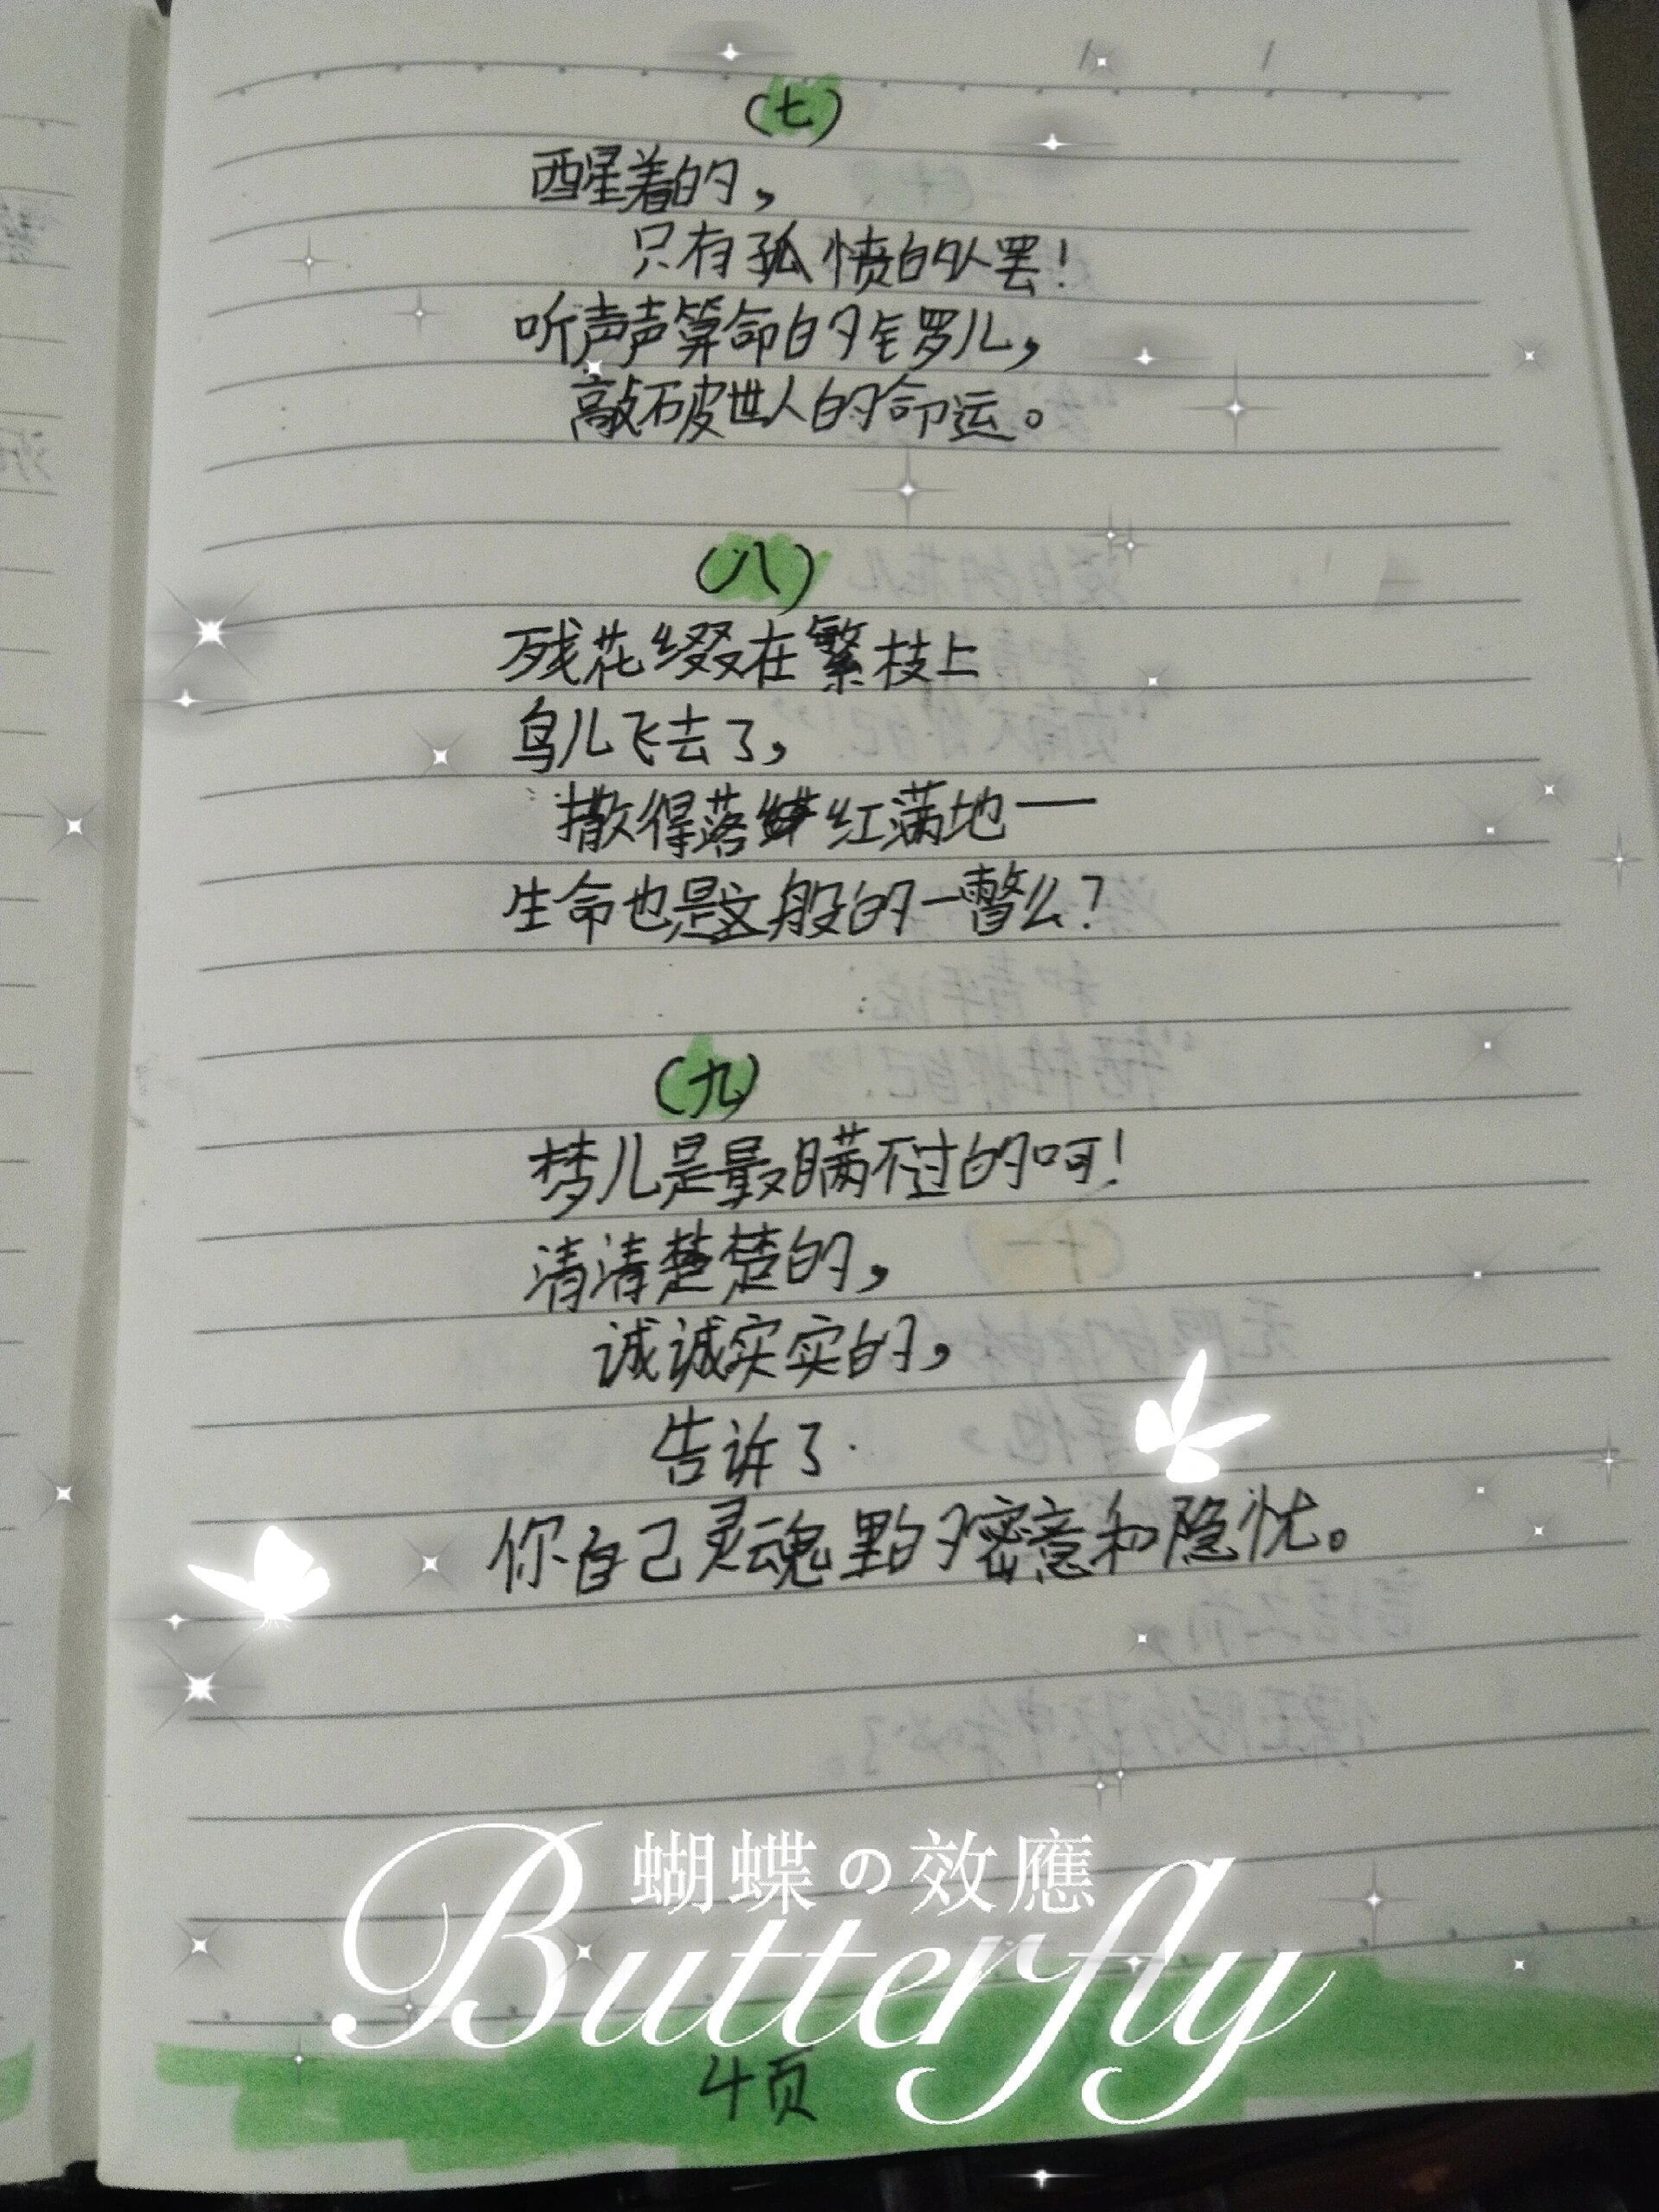 （七）
醒着的，
只有孤愤的人罢！
听声声算命的锣儿，
敲破世人的命运。
（八）
残花缀在繁枝上
鸟儿飞去了，
撒得落红满地一
生命也是这般的一瞥么？
（九）
梦儿是最瞒不过的呵！
清清楚楚的，
诚诚实实的，
告诉了
你自己灵魂里的密意和隐忧。
蝴蝶の效應
Butterfly
4页